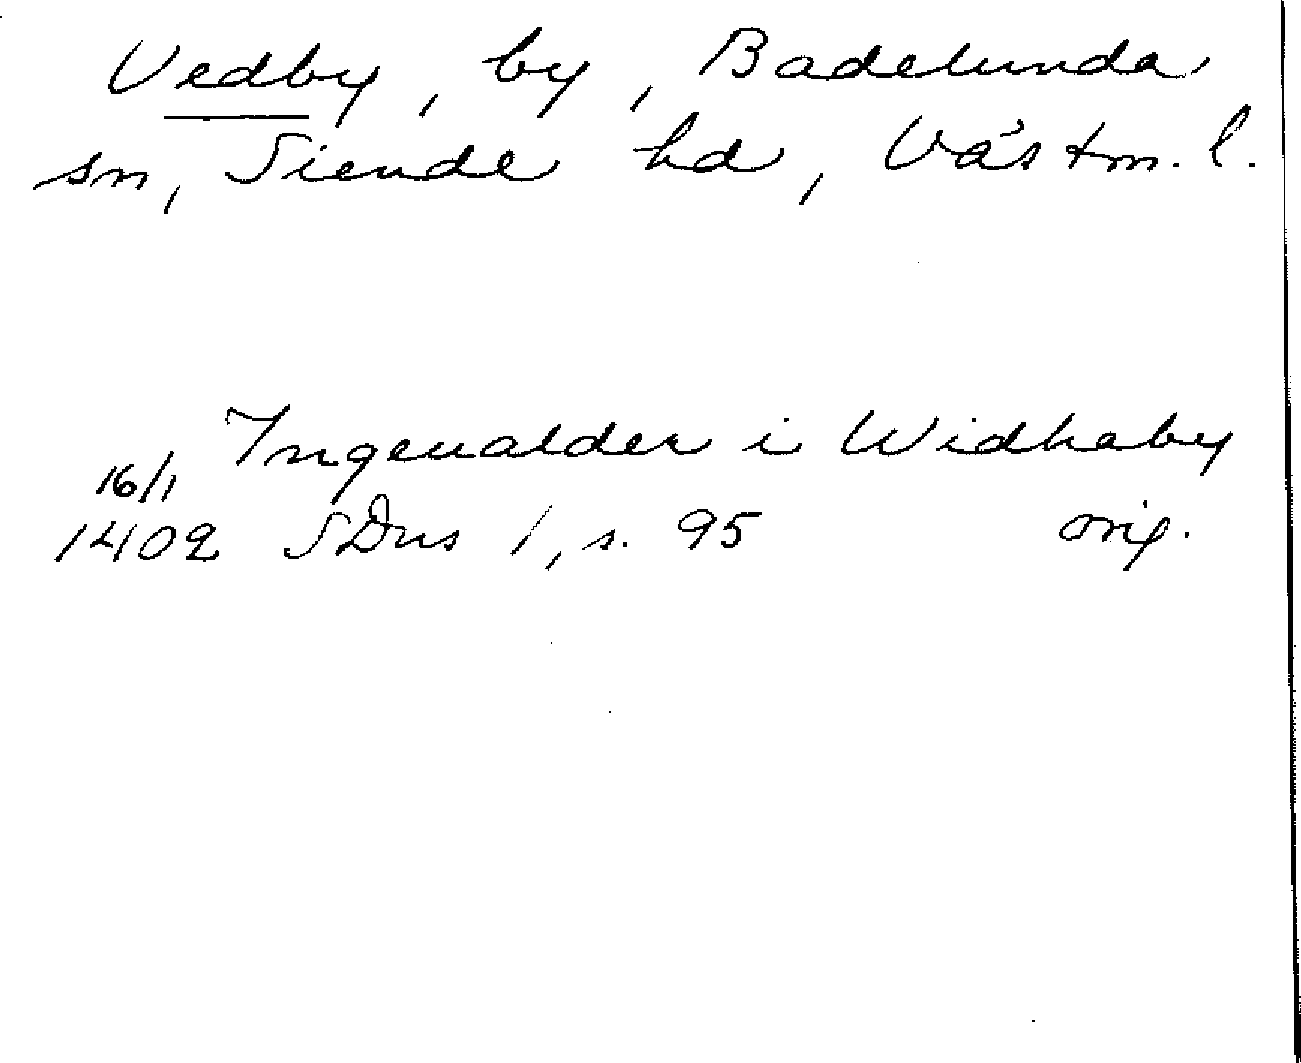 Vedby, by, Badelunda
sn, Siende hd, Västm. l.
Ingeualder i Widhaby
16/1
1402 SDns 1, s. 95 orig.